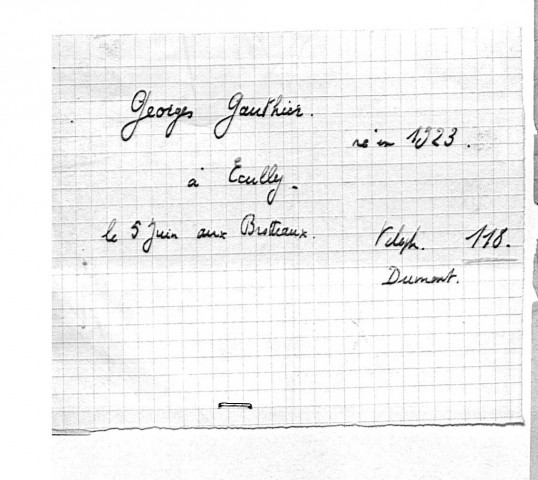 Georges Gauthier.
né en 1923.
à Ecully.
le 5 Juin aux Brotteaux. 118.
Dumont.